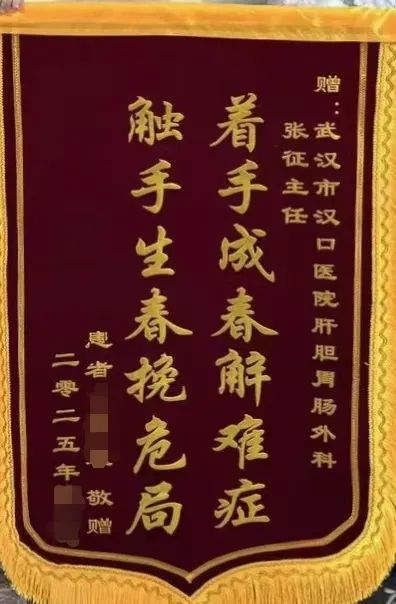 赠：武汉市汉口医院肝胆胃肠外科
张征主任
着手成春解难症
触手生春挽危局
患者 敬赠
二零二五年